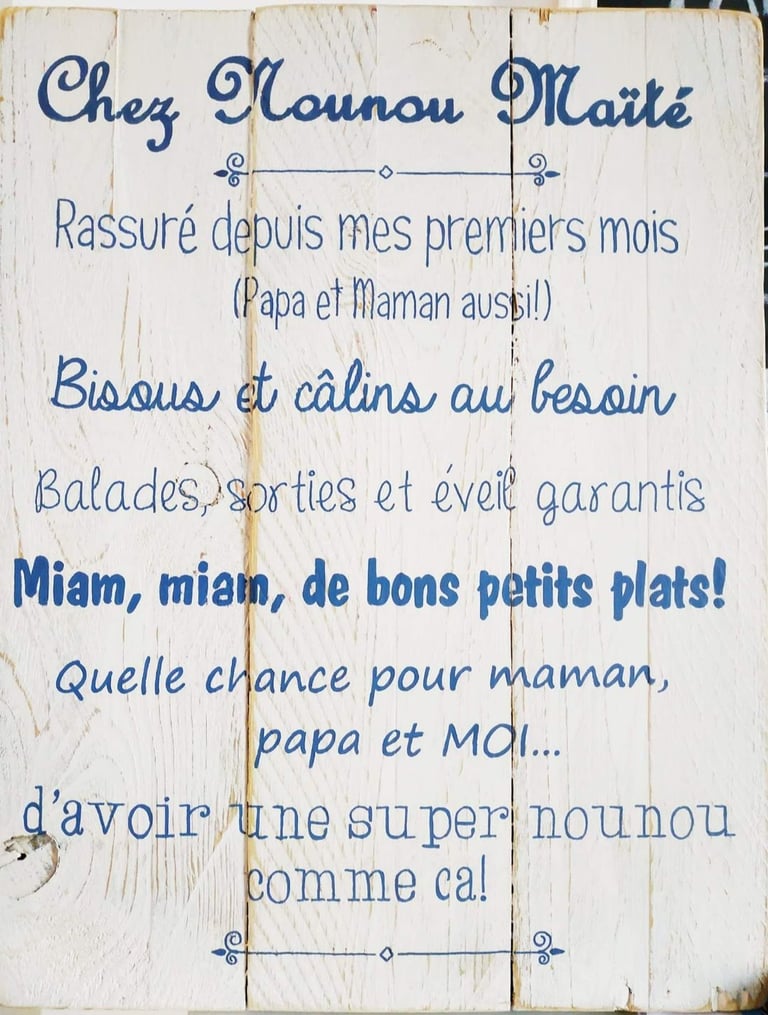 Chez Nounou Maïté
Rassuré depuis mes premiers mois
(Papa et Maman aussi!)
Bisous et câlins au besoin
Balades, sorties et éveil garantis
Miam, miam, de bons petits plats!
Quelle chance pour maman,
papa et MOI...
d'avoir une super nounou
comme ca!